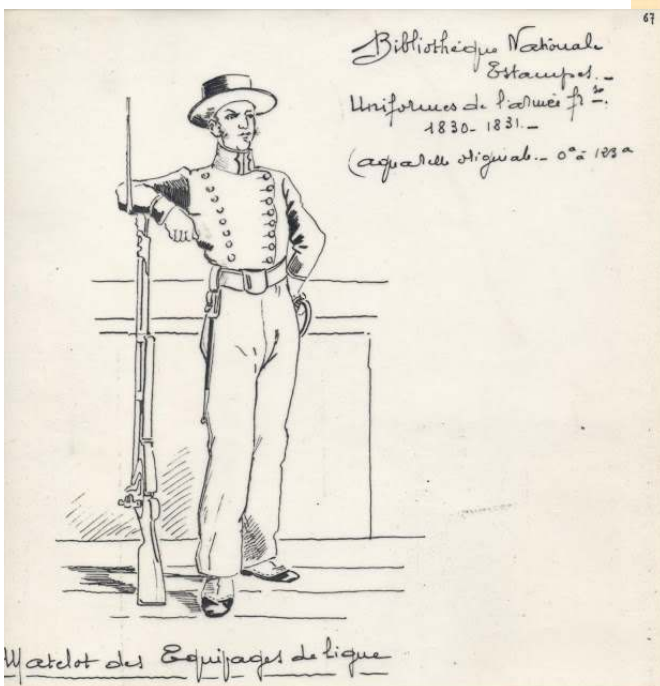 67
Bibliothèque Nationale
Estampes.-
Uniformes de l'armée fr se.
1830-1831.-
(aquarelle originale.- 0a à 123a
Matelot des Equipages de ligne